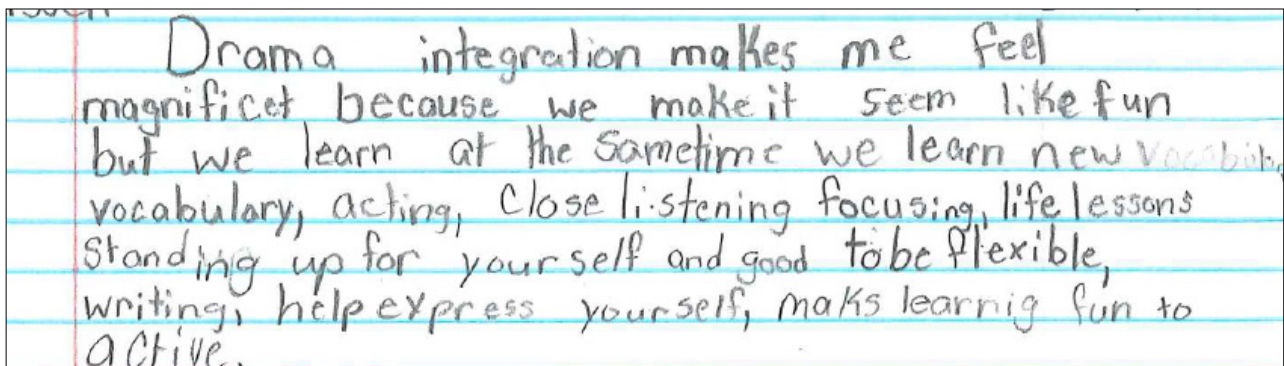 Drama integration makes me feel
magnificet because we make it seem like fun
but we learn at the sametime we learn new
vocabulary, acting, close listening focusing, life lessons
standing up for yourself and good to be flexible,
writing, help express yourself, maks learnig fun to
active.